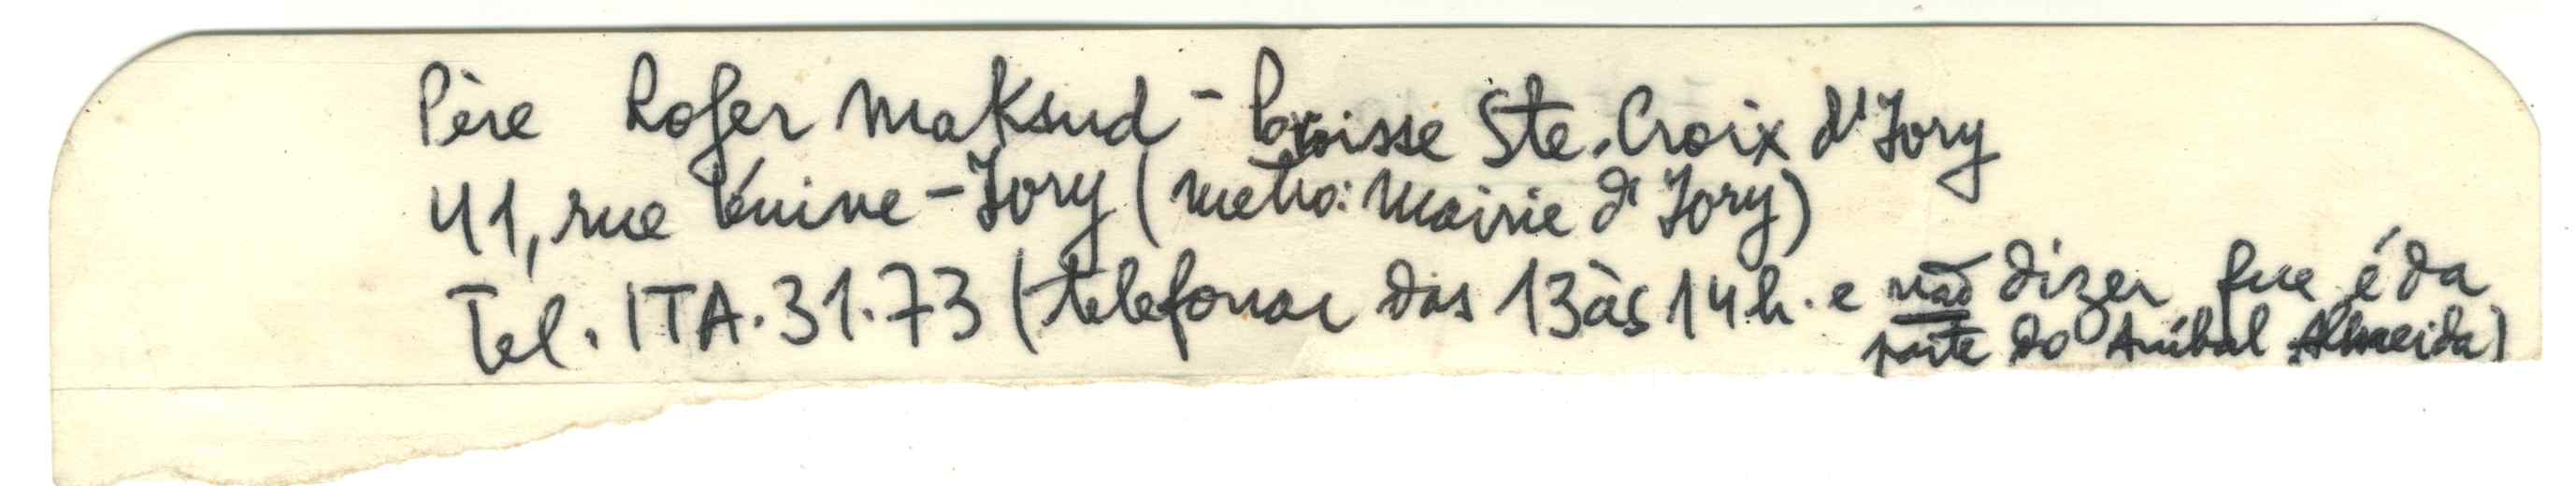 Père Roger Maksud - Paroisse Ste. Croix d'Ivry
41, rue Lénine - Ivry (metro: Mairie d'Ivry)
Tel. ITA. 31. 73 (telefonar das 13 às 14 h. e não dizer que é da
parte do Aníbal Almeida)